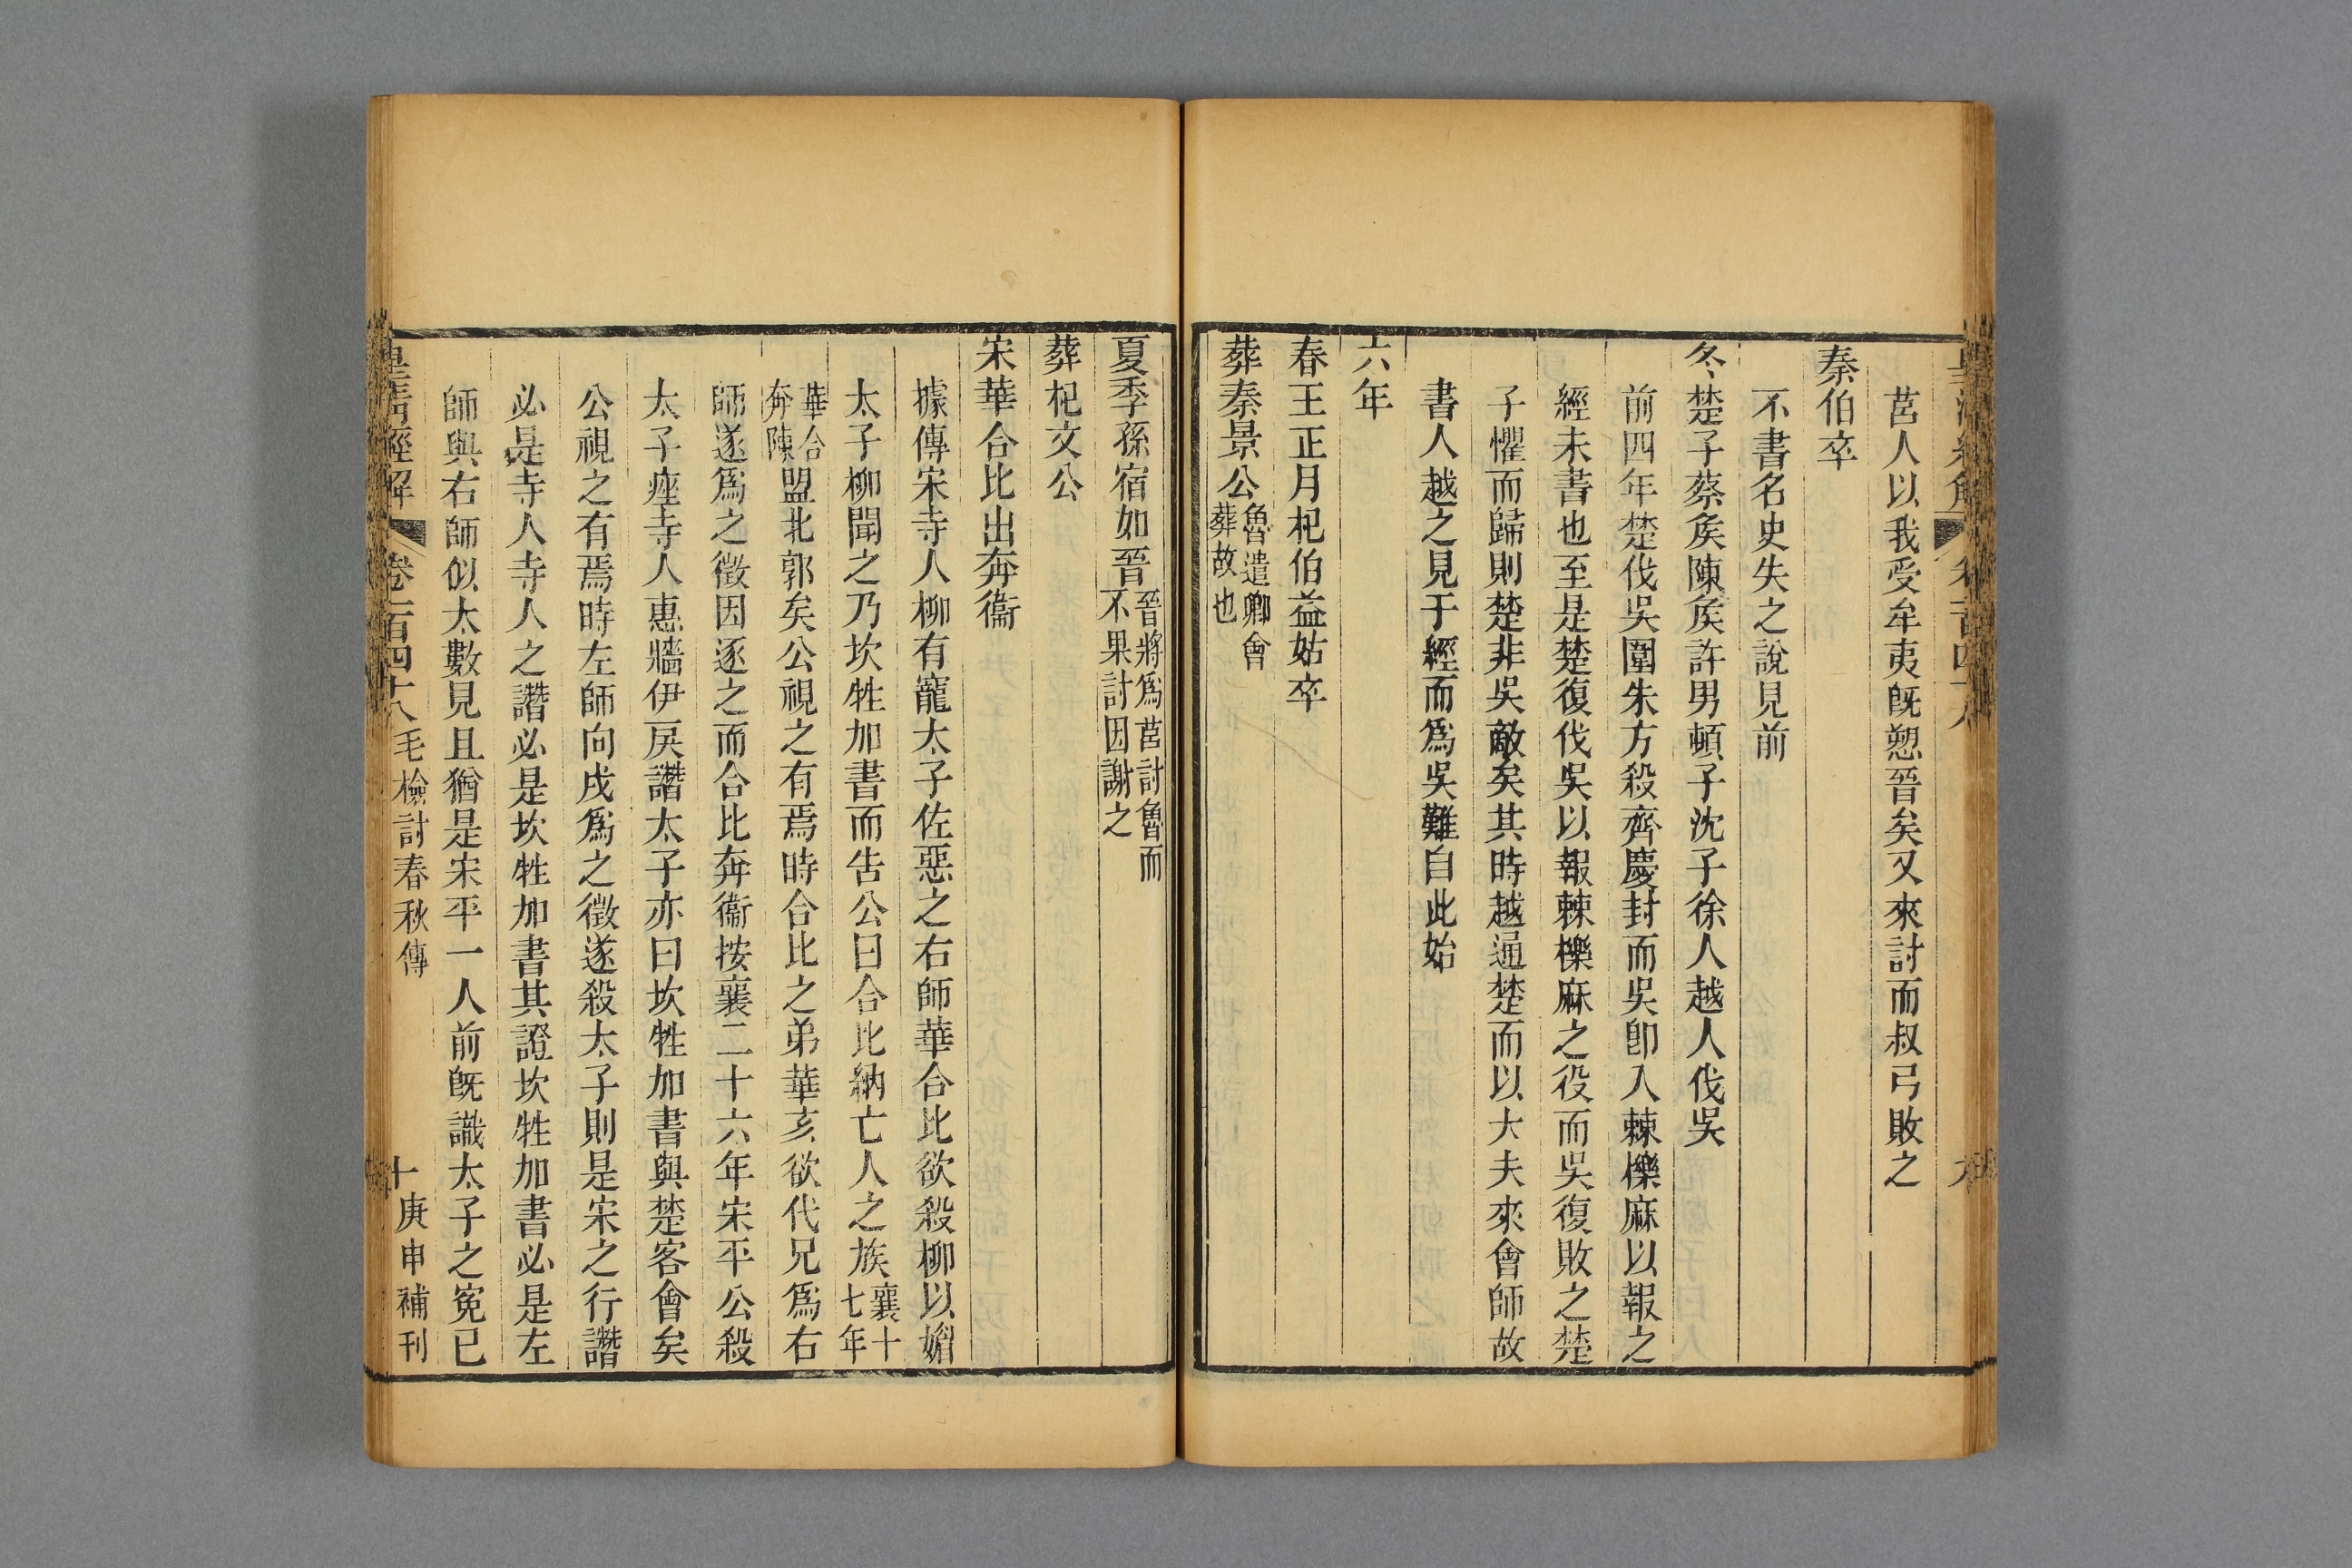 莒人以我受牟夷旣愬晉矣又來討而叔弓敗之
秦伯卒
不書名史失之說見前
冬楚子蔡矦陳矦許男頓子沈子徐人越人伐吳
前四年楚伐吳圍朱方殺齊慶封而吳卽入棘櫟麻以報之
經未書也至是楚復伐吳以報棘櫟麻之役而吳復敗之楚
子懼而歸則楚非吳敵矣其時越通楚而以大夫來會師故
書人越之見于經而爲吳難自此始
六年
春王正月杞伯益姑卒
葬秦景公魯遣卿會葬故也
夏季孫宿如晉晉將爲莒討魯而不果討因謝之
葬杞文公
宋華合比出奔衞
據傳宋寺人柳有寵太子佐惡之右師華合比欲殺柳以媚
太子柳聞之乃坎牲加書而告公曰合比納亡人之族襄十七年
華合奔陳盟北郭矣公視之有焉時合比之弟華亥欲代兄爲右
師遂爲之徵因逐之而合比奔衞按襄二十六年宋平公殺
太子痤寺人惠牆伊戾譖太子亦曰坎牲加書與楚客會矣
公視之有焉時左師向戌爲之徵遂殺太子則是宋之行譖
必是寺人寺人之譖必是坎牲加書其證坎牲加書必是左
師與右師似太數見且猶是宋平一人前旣識太子之冤已
皇淸經解
卷一百四十八
毛檢討春秋傳
十
庚申補刊